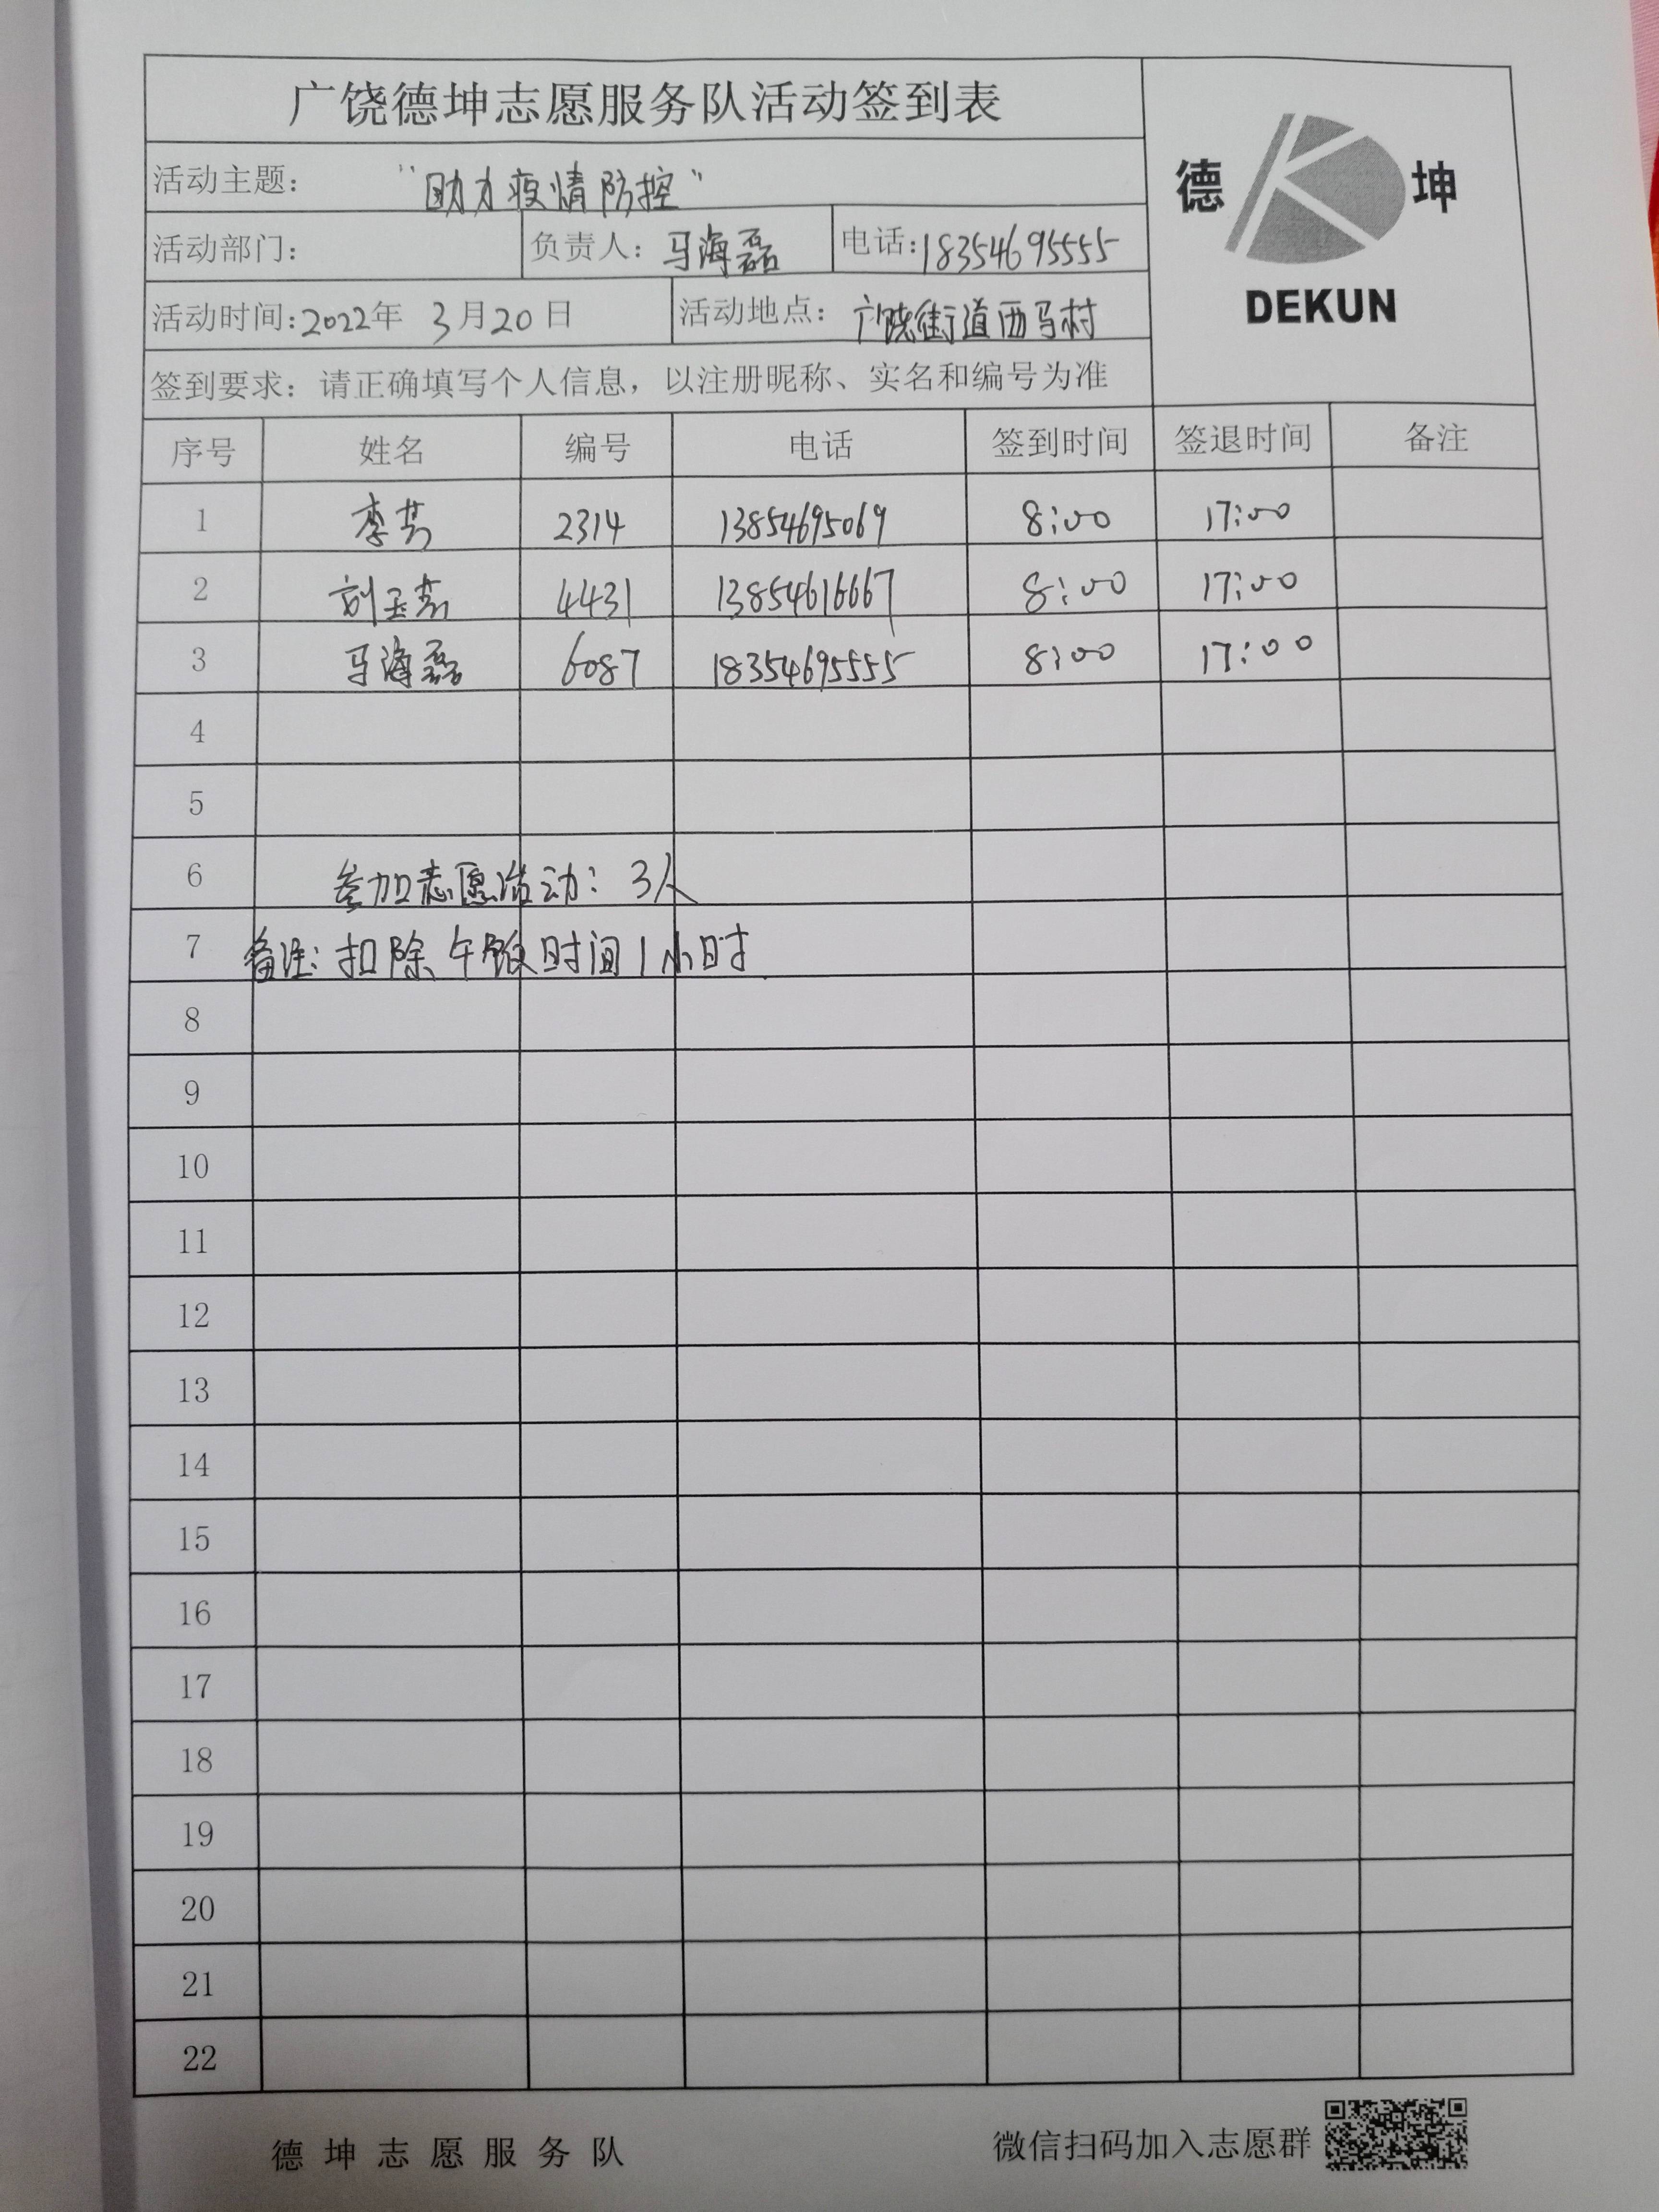 广饶德坤志愿服务队活动签到表
德 坤
DEKUN
活动主题： "助力疫情防控"
活动部门： 负责人：马海磊 电话：18354695555
活动时间：2022年 3月20日 活动地点：广饶街道西马村
签到要求：请正确填写个人信息，以注册昵称、实名和编号为准
序号 姓名 编号 电话 签到时间 签退时间 备注
1 李芳 2314 13854695069 8:00 17:00
2 刘玉芳 4431 13854616667 8:00 17:00
3 马海磊 6087 18354695555 8:00 17:00
4
5
6 参加志愿活动：3人
7 备注：扣除午饭时间1小时
8
9
10
11
12
13
14
15
16
17
18
19
20
21
22
德坤志愿服务队 微信扫码加入志愿群